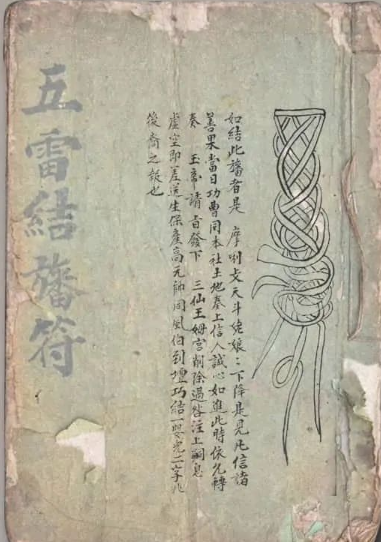 如結此旛者是 摩唎支天斗姥娘〻下降是見凡信諸
善果當日功曹同本社土地奏上信人誠心如進此時依允轉
奏 玉帝請旨發下 三仙王姆宮削除過咎注上嗣息
虛空即差送生保產高元帥同風伯到壇巧結一二字
後裔之報也
五雷結旛符